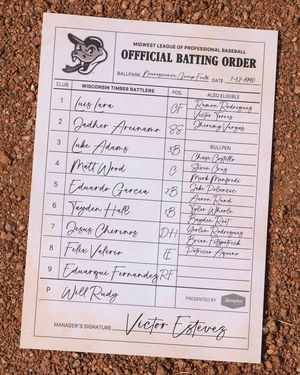 MIDWEST LEAGUE OF PROFESSIONAL BASEBALL
OFFFICIAL BATTING ORDER
BALLPARK Neuroscience Group Field DATE
CLUB WISCONSIN TIMBER RATTLERS POS. ALSO ELIGIBLE
1 Luis Lara CF
2 Jadher Areinamo SS
3 Luke Adams 3B
4 Matt Wood C
5 Eduardo Garcia 2B
6 Tayden Hall 1B
7 Jesus Chirinos DH
8 Felix Valerio
9 Eduarqui Fernandez RF
P Will Rudy
Ramon Rodriguez
Victor Torres
Jheremy Vargas
BULLPEN
Chase Costello
Stiven Cruz
Mark Manfredi
Jake Polancic
Aaron Rund
Tyler Wehrle
Bayden Root
Yerlin Rodriguez
Brian Fitzpatrick
Patricio Aquino
PRESENTED BY Hampton
MANAGER'S SIGNATURE Victor Estevez